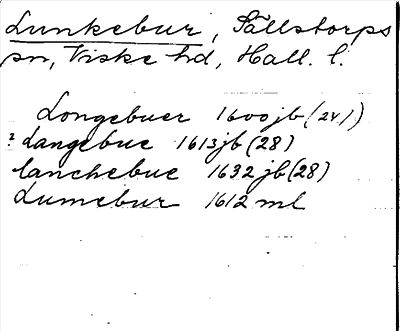 Lunkebur, Sällstorps
sn, Viske hd, Hall. l.
Longebuer 1600 jb (24/)
? Langebue 1613 jb (28)
lanchebue 1632 jb (28)
Lumebur 1612 ml